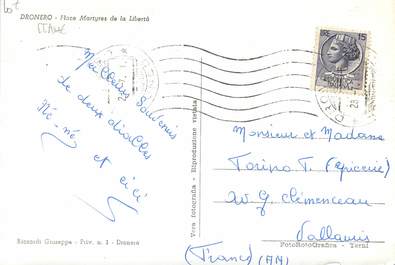 Lot
DRONERO - Place Martyres de la Libertà
ITALIE
LIRE 15
Meilleurs Souvenirs
de deux diables
Né-né
et cici
Monsieur et Madame
Torino T. (épicerie)
av G. Clémenceau
Vallauris
(France) (AM)
Vera fotografia - Riproduzione vietata
Ristorto Giuseppe - Priv. n. 1 - Dronero
FotoRotoGrafica - Terni